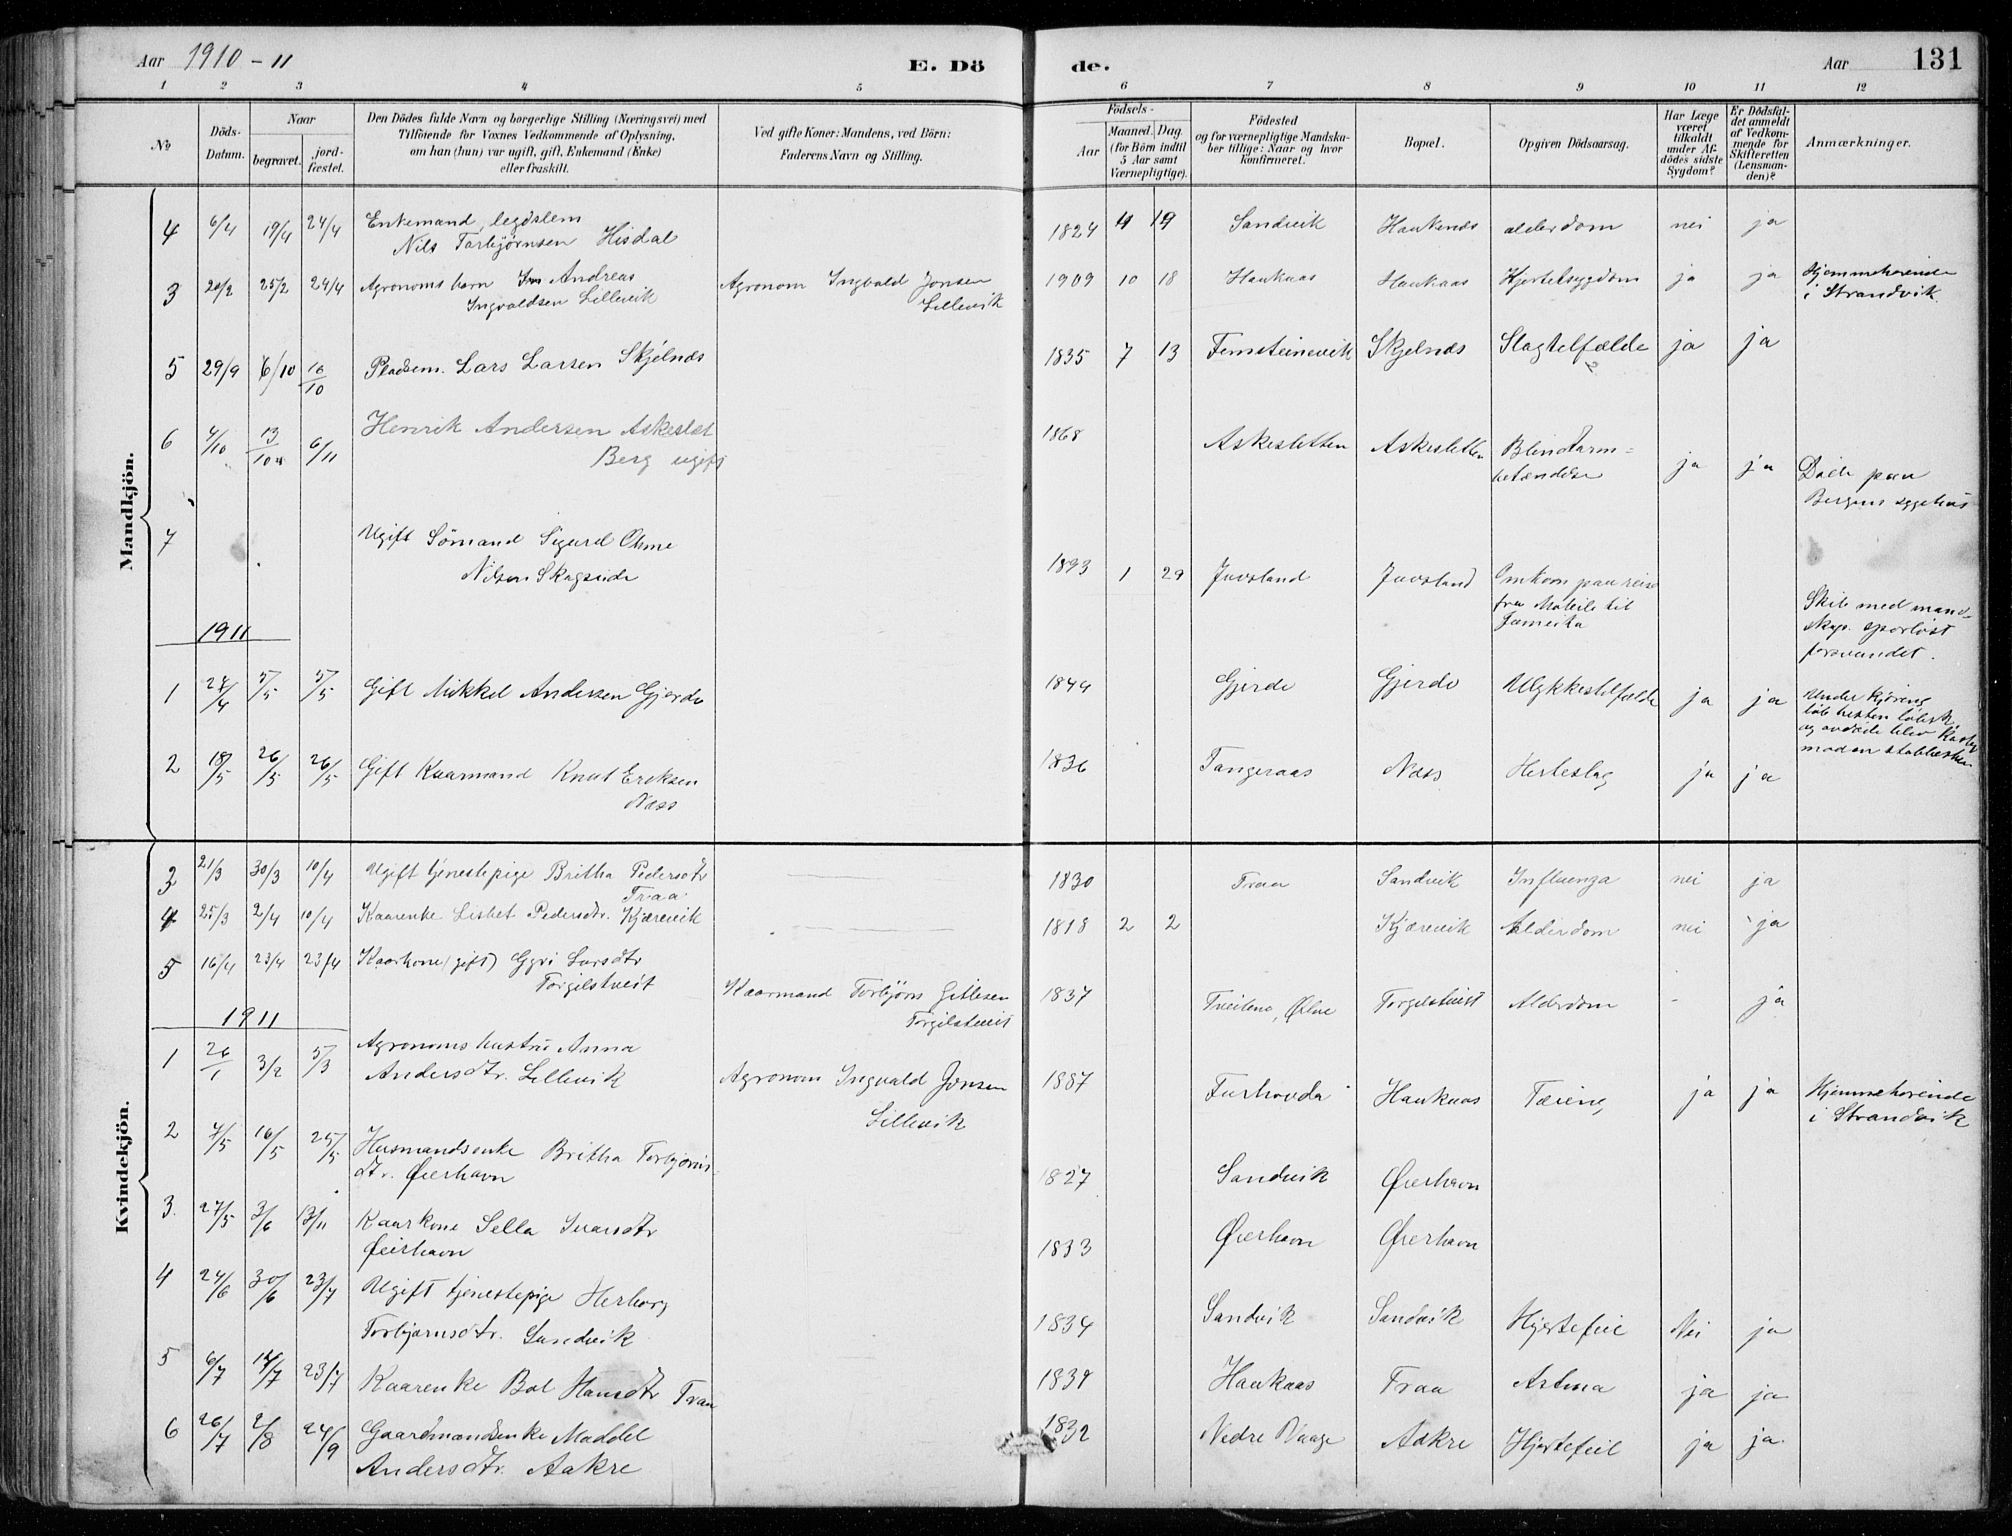 Aar 1910 - 11 E. Dö de. Aar 131
1 2 3 4 5 6 7 8 9 10 11 12
No
Döds-Datum.
Naar
begravet.
jord-fæstet.
Den Dödes fulde Navn og borgerlige Stilling (Næringsvei) med
Tilföiende for Voxnes Vedkommende af Oplysning,
om han (hun) var ugift, gift, Enkemand (Enke)
eller fraskilt.
Ved gifte Koner: Mandens, ved Börn:
Faderens Navn og Stilling.
Födsels-
Aar
Maaned. Dag.
(for Börn indtil
5 Aar samt
Værnepligtige).
Födested
og for værnepligtige Mandska-
ber tillige: Naar og hvor
konfirmeret.
Bopæl.
Opgiven Dödsaarsag.
Har Læge
været
tilkaldt
under Af-
dödes sidste
Sygdom?
Er Dödsfal-
det anmeldt
af Vedkom-
mende for
Skifteretten
(Lensman-
den)?
Anmærkninger.
Mandkjön.
4 6/4 19/4 24/4 Enkemand, legdslem 1824 4 19 Sandvik Haukanæs alderdom nei ja
Nils Torbjørnsen Hisdal
3 20/2 25/2 24/4 Agronoms barn Andreas Agronom Ingvald Jonsen 1909 10 18 Haukaas Haukaas Hjertesygdom ja ja Hjemmehørende
Ingvaldsen Lillevik Lillevik i Strandvik
5 29/9 6/10 16/10 Pladsm. Lars Larsen Skjelnæs 1835 7 13 Femsteinevik Skjelnæs Slagtilfælde ja ja
6 4/10 13/10 6/11 Henrik Andersen Askeslet 1868 Askesletten Askesletten Blindtarm-
Berg ugift betændelse ja ja Døde paa
Bergens sygehus
7 Ugift Sömand Sigurd Ohme 1893 1 29 Juvsland Juvsland Omkom paa reise
Nilsen Skagside fra Mobile til
Skib med mand-
skap sporløst
forsvundet.
1911
1 27/4 5/5 5/5 Gift Mikkel Andersen Gjerde 1844 Gjerde Gjerde Ulykkestilfælde ja ja Under kjøring
løb hesten løbsk
og avdøde blev kastet
mod en
2 18/5 26/5 26/5 Gift Kaarmand Knut Eriksen 1836 Tangeraas Næss Herteslag ja ja
Næss
Kvindekjön.
3 21/3 30/3 10/4 Ugift tjenestepige Britha Pedersdtr 1830 Traa Sandvik Influenza nei ja
Traa
4 25/3 2/4 10/4 Kaarenke Lisbet Pedersdtr. Kjærevik 1818 2 2 Kjærevik Alderdom nei ja
5 16/4 23/4 23/4 Kaarkone (gift) Gyri Larsdtr Kaarmand Torbjørn Gitlesen 1837 Tveitene, Ølve Torgilstveit Alderdom - ja
Torgilstveit Torgilstveit
1911
1 26/1 3/2 5/3 Agronoms hustru Anna Agronom Ingvald Jonsen 1887 Furhovda Haukaas Tæring ja ja Hjemmehørende
Andersdtr. Lillevik Lillevik i Strandvik
2 7/5 16/5 25/5 Husmandsenke Britha Torbjørns- 1827 Sandvik Øierhavn
dtr. Øierhavn
3. 27/5 3/6 13/11 Kaarkone Sella Ivarsdtr 1833 Øierhavn Øierhavn
Øeirhavn
4 24/6 30/6 23/7 Ugift tjenestepige Herborg 1834 Sandvik Sandvik Hjertefeil Nei ja
Torbjørnsdtr. Sandvik
5 6/7 14/7 23/7 Kaarenke Bol Hansdtr Traa 1838 Haukaas Traa Astma ja ja
6 26/7 2/8 24/9 Gaardmandsenke Maddel 1832 Nedre Vaage Aakre Hjertefeil ja ja.
Andersdtr. Aakre